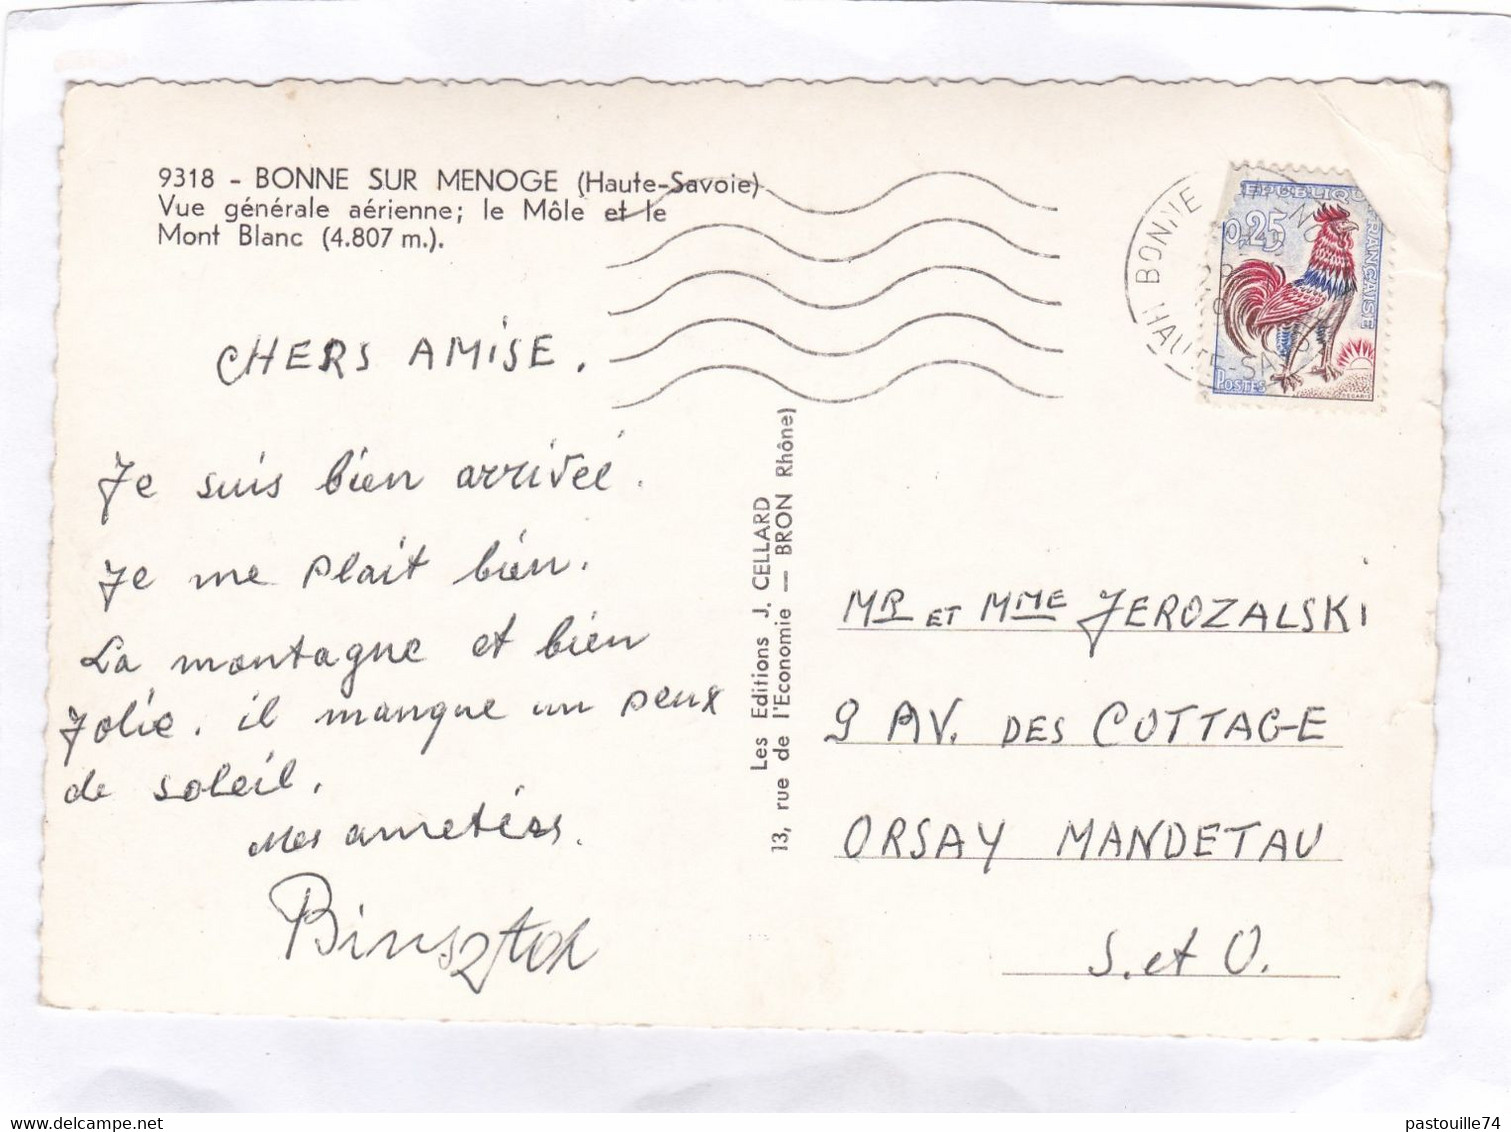 9318 - BONNE SUR MENOGE (Haute-Savoie)
Vue générale aérienne; le Môle et le
Mont Blanc (4.807 m.).
CHERS AMISE.
Je suis bien arrivéé.
Je me plait bien.
La montagne et bien
Jolie. il manque un peux
de soleil.
Mes ametées.
Binsztok
Les Editions J. CELLARD
13, rue de l'Economie — BRON Rhône)
BONNE
HAUTE-SAVOIE
EPUBLIQUE FRANÇAISE
0,25
POSTES
DECARIS
MR ET MME JEROZALSKI
9 AV. DES COTTAGE
ORSAY MANDETAU
S. et O.
delcampe.net
pastouille74